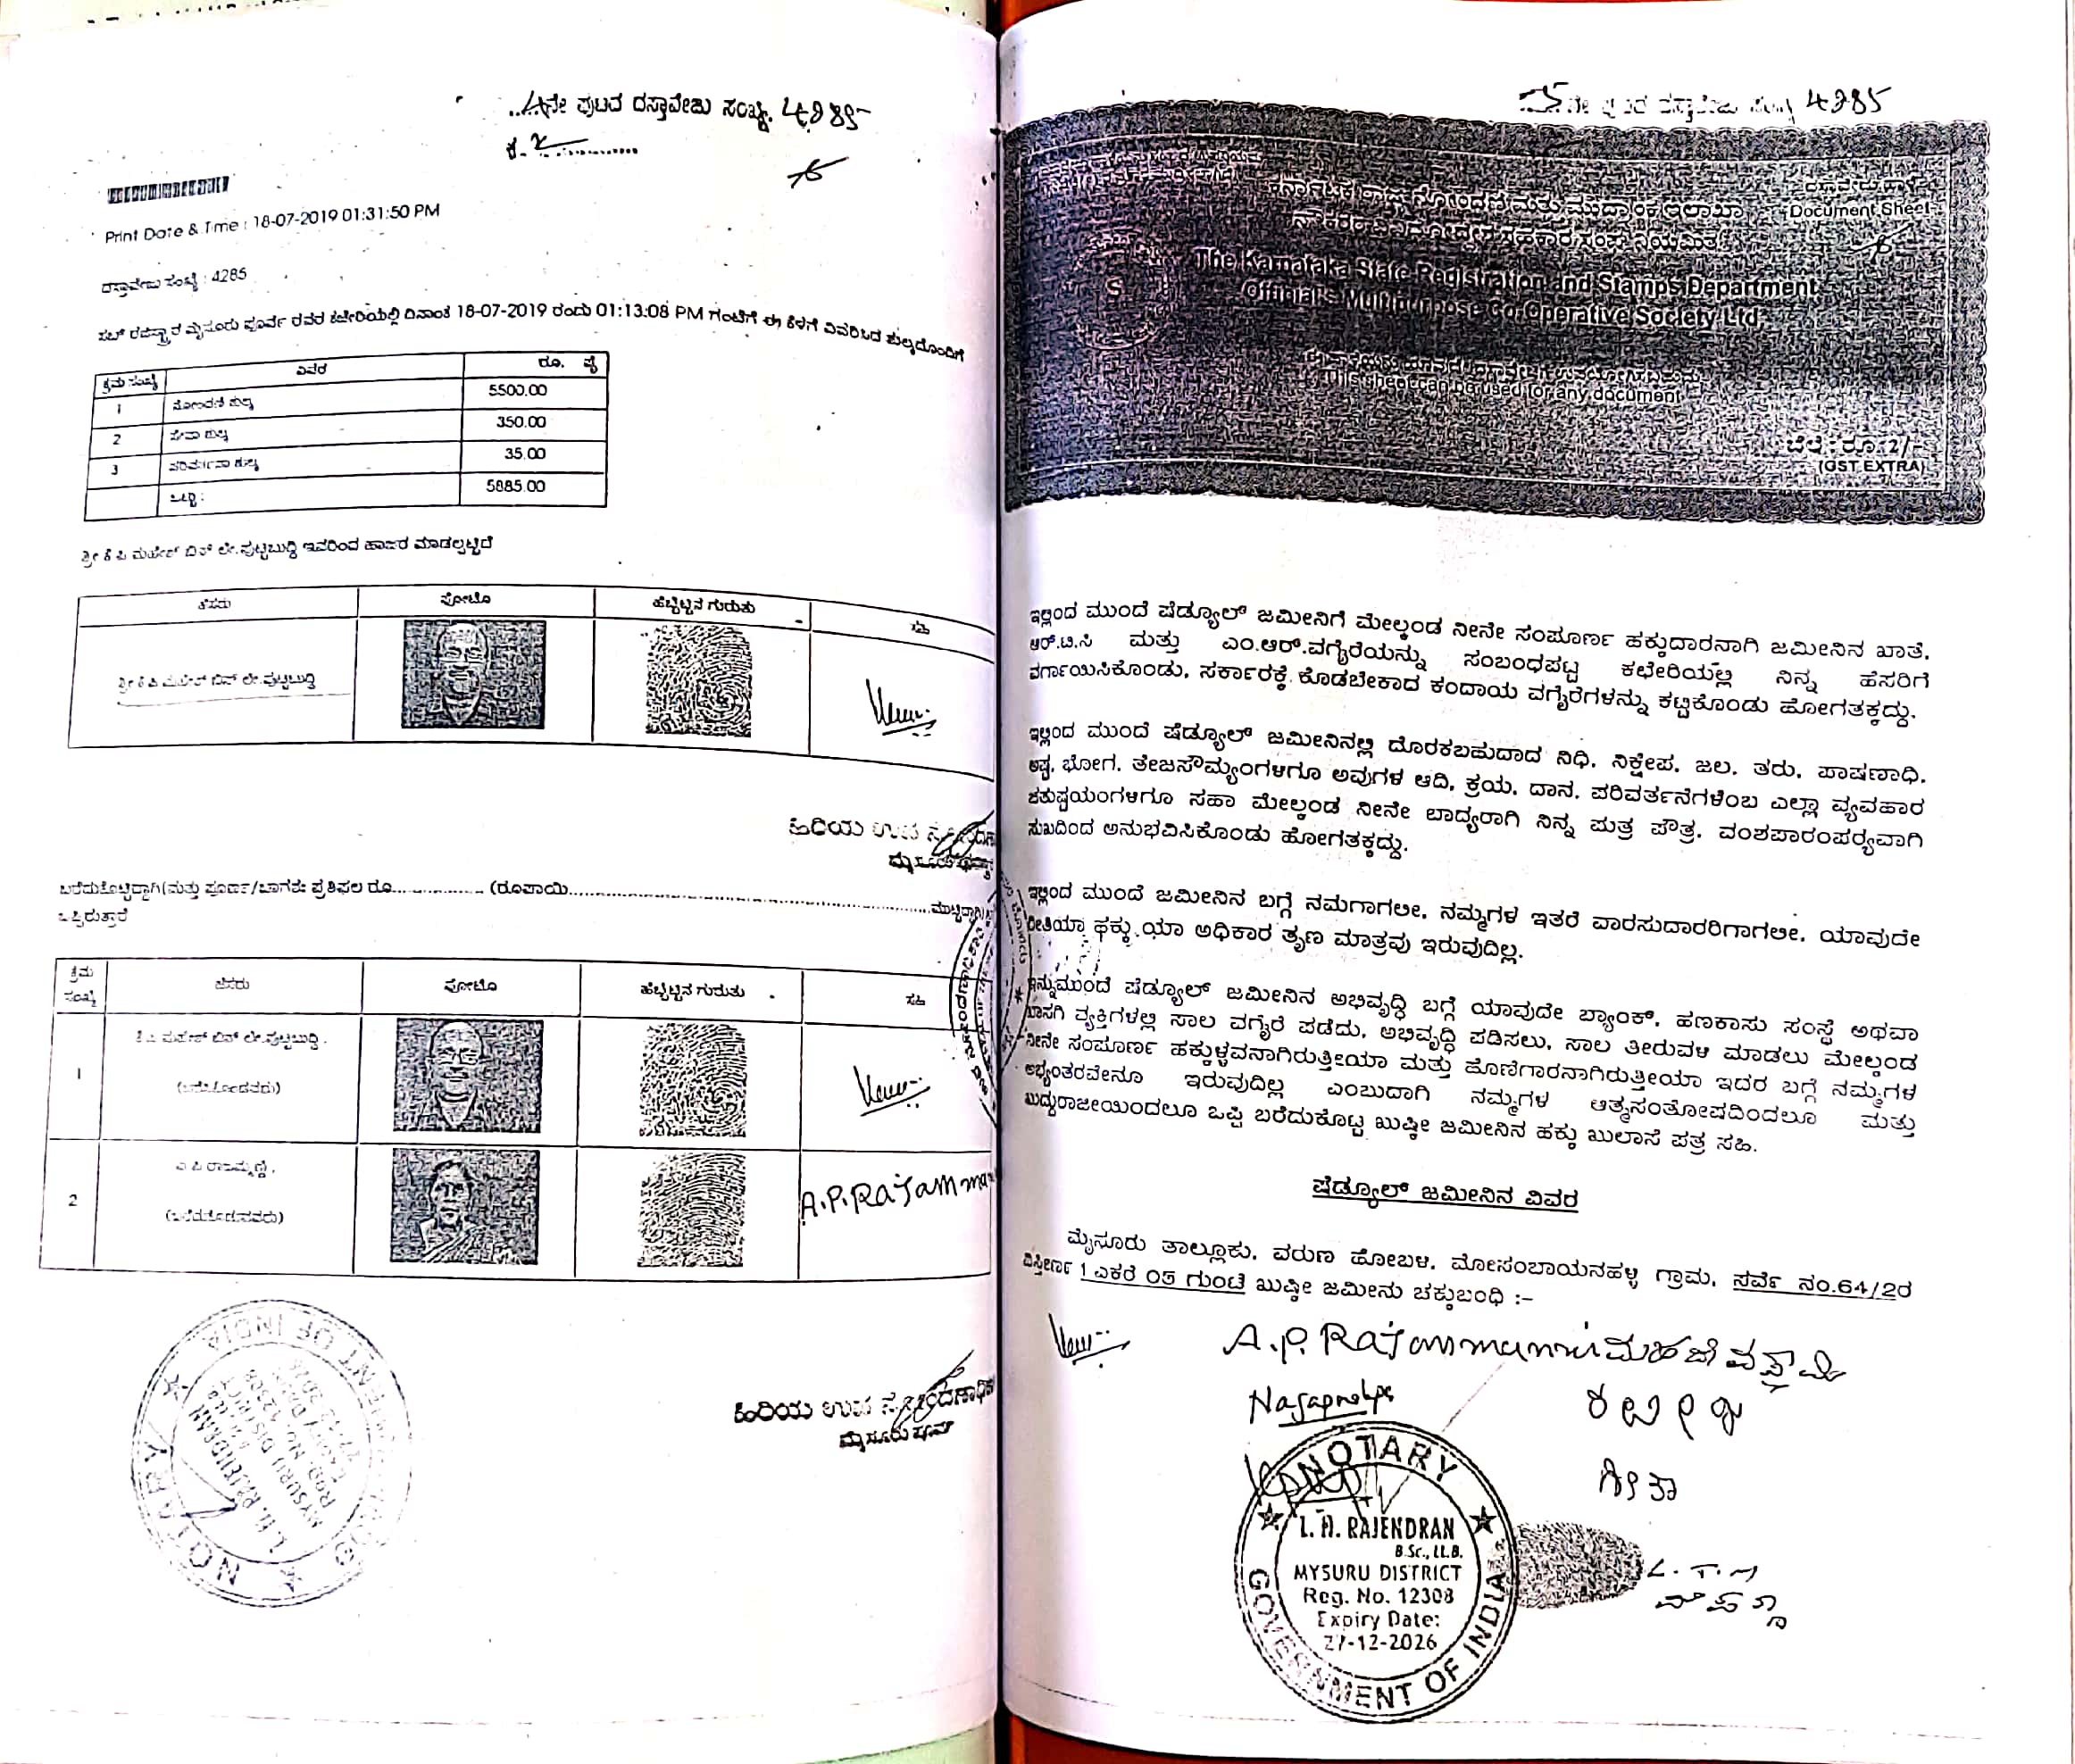 ನೇ ಪುಟದ ದಸ್ತಾವೇಜು ಸಂಖ್ಯೆ. 4285
Print Date & Time : 18-07-2019 01:31:50 PM
ದಸ್ತಾವೇಜು ಸಂಖ್ಯೆ : 4285
ಸಬ್ ರಜಿಸ್ಟ್ರಾರ ಮೈಸೂರು ಪೂರ್ವ ರವರ ಕಚೇರಿಯಲ್ಲಿ ದಿನಾಂಕ 18-07-2019 ರಂದು 01:13:08 PM ಗಂಟೆಗೆ ಈ ಕೆಳಗೆ ವಿವರಿಸಿದ ಶುಲ್ಕದೊಂದಿಗೆ
ಕ್ರಮ ಸಂಖ್ಯೆ ವಿವರ ರೂ. ಪೈ
1 ನೋಂದಣಿ ಶುಲ್ಕ 5500.00
2 ಸೇವಾ ಶುಲ್ಕ 350.00
3 ಪರಿವರ್ತನಾ ಶುಲ್ಕ 35.00
ಒಟ್ಟು : 5885.00
ಶ್ರೀ ಕೆ ಪಿ ಮಹೇಶ್ ಬಿನ್ ಲೇ.ಪುಟ್ಟಬುದ್ಧಿ ಇವರಿಂದ ಹಾಜರ ಮಾಡಲ್ಪಟ್ಟಿದೆ
ಹೆಸರು ಫೋಟೊ ಹೆಬ್ಬೆಟ್ಟಿನ ಗುರುತು ಸಹಿ
ಶ್ರೀ ಕೆ ಪಿ ಮಹೇಶ್ ಬಿನ್ ಲೇ.ಪುಟ್ಟಬುದ್ಧಿ
ಹಿರಿಯ ಉಪ
ಬರೆದುಕೊಟ್ಟಿದ್ದಾಗಿ(ಮತ್ತು ಪೂರ್ಣ/ಭಾಗಶಃ ಪ್ರತಿಫಲ ರೂ.................. (ರೂಪಾಯಿ..........................................
ಒಪ್ಪಿರುತ್ತಾರೆ
ಕ್ರಮ ಸಂಖ್ಯೆ ಹೆಸರು ಫೋಟೊ ಹೆಬ್ಬೆಟ್ಟಿನ ಗುರುತು ಸಹಿ
1 ಕೆ.ಪಿ ಮಹೇಶ್ ಬಿನ್ ಲೇ.ಪುಟ್ಟಬುದ್ಧಿ .
(ಬರೆಸಿಕೊಂಡವರು)
2 ಎ ಪಿ ರಾಜಮ್ಮಣ್ಣಿ .
(ಬರೆದುಕೊಡುವವರು)
A.P.Rajamma
ಹಿರಿಯ ಉಪ
ಮೈಸೂರು ಪೂರ್ವ
NOTARY
L.H. RAJENDRAN
ನೇ ಪುಟದ ದಸ್ತಾವೇಜು ಸಂಖ್ಯೆ 4285
ಕರ್ನಾಟಕ ರಾಜ್ಯ ನೋಂದಣಿ ಮತ್ತು ಮುದ್ರಾಂಕ ಇಲಾಖಾ
Document Sheet
The Karnataka State Registration and Stamps Department
Official's Multipurpose Co-Operative Society Ltd.
This sheet can be used for any document
ಬೆಲೆ : ರೂ. 2/-
(GST EXTRA)
ಇಲ್ಲಿಂದ ಮುಂದೆ ಷೆಡ್ಯೂಲ್ ಜಮೀನಿಗೆ ಮೇಲ್ಕಂಡ ನೀನೇ ಸಂಪೂರ್ಣ ಹಕ್ಕುದಾರನಾಗಿ ಜಮೀನಿನ ಖಾತೆ,
ಆರ್.ಟಿ.ಸಿ ಮತ್ತು ಎಂ.ಆರ್.ವಗೈರೆಯನ್ನು ಸಂಬಂಧಪಟ್ಟ ಕಛೇರಿಯಲ್ಲಿ ನಿನ್ನ ಹೆಸರಿಗೆ
ವರ್ಗಾಯಿಸಿಕೊಂಡು, ಸರ್ಕಾರಕ್ಕೆ ಕೊಡಬೇಕಾದ ಕಂದಾಯ ವಗೈರೆಗಳನ್ನು ಕಟ್ಟಿಕೊಂಡು ಹೋಗತಕ್ಕದ್ದು.
ಇಲ್ಲಿಂದ ಮುಂದೆ ಷೆಡ್ಯೂಲ್ ಜಮೀನಿನಲ್ಲಿ ದೊರಕಬಹುದಾದ ನಿಧಿ, ನಿಕ್ಷೇಪ, ಜಲ, ತರು, ಪಾಷಣಾಧಿ,
ಅಷ್ಟ, ಭೋಗ, ತೇಜಸೌಮ್ಯಂಗಳಿಗೂ ಅವುಗಳ ಆದಿ, ಕ್ರಯ, ದಾನ, ಪರಿವರ್ತನೆಗಳೆಂಬ ಎಲ್ಲಾ ವ್ಯವಹಾರ
ಚತುಷ್ಟಯಂಗಳಿಗೂ ಸಹಾ ಮೇಲ್ಕಂಡ ನೀನೇ ಬಾದ್ಯರಾಗಿ ನಿನ್ನ ಪುತ್ರ ಪೌತ್ರ, ವಂಶಪಾರಂಪರ್‍ಯವಾಗಿ
ಸುಖದಿಂದ ಅನುಭವಿಸಿಕೊಂಡು ಹೋಗತಕ್ಕದ್ದು.
ಇಲ್ಲಿಂದ ಮುಂದೆ ಜಮೀನಿನ ಬಗ್ಗೆ ನಮಗಾಗಲೀ, ನಮ್ಮಗಳ ಇತರೆ ವಾರಸುದಾರರಿಗಾಗಲೀ, ಯಾವುದೇ
ರೀತಿಯಾ ಹಕ್ಕು ಯಾ ಅಧಿಕಾರ ತೃಣ ಮಾತ್ರವು ಇರುವುದಿಲ್ಲ.
ಇನ್ನುಮುಂದೆ ಷೆಡ್ಯೂಲ್ ಜಮೀನಿನ ಅಭಿವೃದ್ಧಿ ಬಗ್ಗೆ ಯಾವುದೇ ಬ್ಯಾಂಕ್, ಹಣಕಾಸು ಸಂಸ್ಥೆ ಅಥವಾ
ಖಾಸಗಿ ವ್ಯಕ್ತಿಗಳಲ್ಲಿ ಸಾಲ ವಗೈರೆ ಪಡೆದು, ಅಭಿವೃದ್ಧಿ ಪಡಿಸಲು, ಸಾಲ ತೀರುವಳಿ ಮಾಡಲು ಮೇಲ್ಕಂಡ
ನೀನೇ ಸಂಪೂರ್ಣ ಹಕ್ಕುಳ್ಳವನಾಗಿರುತ್ತೀಯಾ ಮತ್ತು ಹೊಣೆಗಾರನಾಗಿರುತ್ತೀಯಾ ಇದರ ಬಗ್ಗೆ ನಮ್ಮಗಳ
ಅಭ್ಯಂತರವೇನೂ ಇರುವುದಿಲ್ಲ ಎಂಬುದಾಗಿ ನಮ್ಮಗಳ ಆತ್ಮಸಂತೋಷದಿಂದಲೂ ಮತ್ತು
ಖುದ್ದುರಾಜೀಯಿಂದಲೂ ಒಪ್ಪಿ ಬರೆದುಕೊಟ್ಟ ಖುಷ್ಕೀ ಜಮೀನಿನ ಹಕ್ಕು ಖುಲಾಸೆ ಪತ್ರ ಸಹಿ.
ಷೆಡ್ಯೂಲ್ ಜಮೀನಿನ ವಿವರ
ಮೈಸೂರು ತಾಲ್ಲೂಕು, ವರುಣ ಹೋಬಳಿ, ಮೋಸಂಬಾಯನಹಳ್ಳಿ ಗ್ರಾಮ, ಸರ್ವೆ ನಂ.64/2ರ
ವಿಸ್ತೀರ್ಣ 1 ಎಕರೆ 05 ಗುಂಟೆ ಖುಷ್ಕೀ ಜಮೀನು ಚಕ್ಕುಬಂಧಿ :-
A.P.Rajammanni ಮಹದೇವಸ್ವಾಮಿ
ಗೀತಾ
L.T.M
NOTARY
L. H. RAJENDRAN
B.Sc., LL.B.
MYSURU DISTRICT
Reg. No. 12308
Expiry Date:
27-12-2026
GOVERNMENT OF INDIA